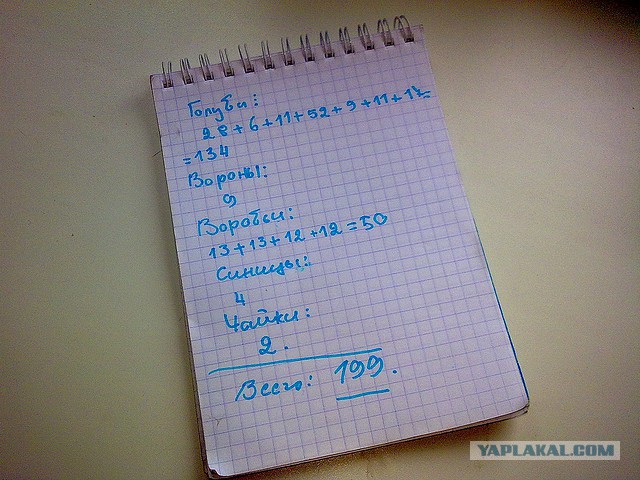 Голуби:
28+6+11+52+9+11+17=
=134
Вороны:
9
Воробьи:
13+13+12+12=50
Синицы:
4
Чайки:
2.
Всего: 199.
YAPLAKAL.COM